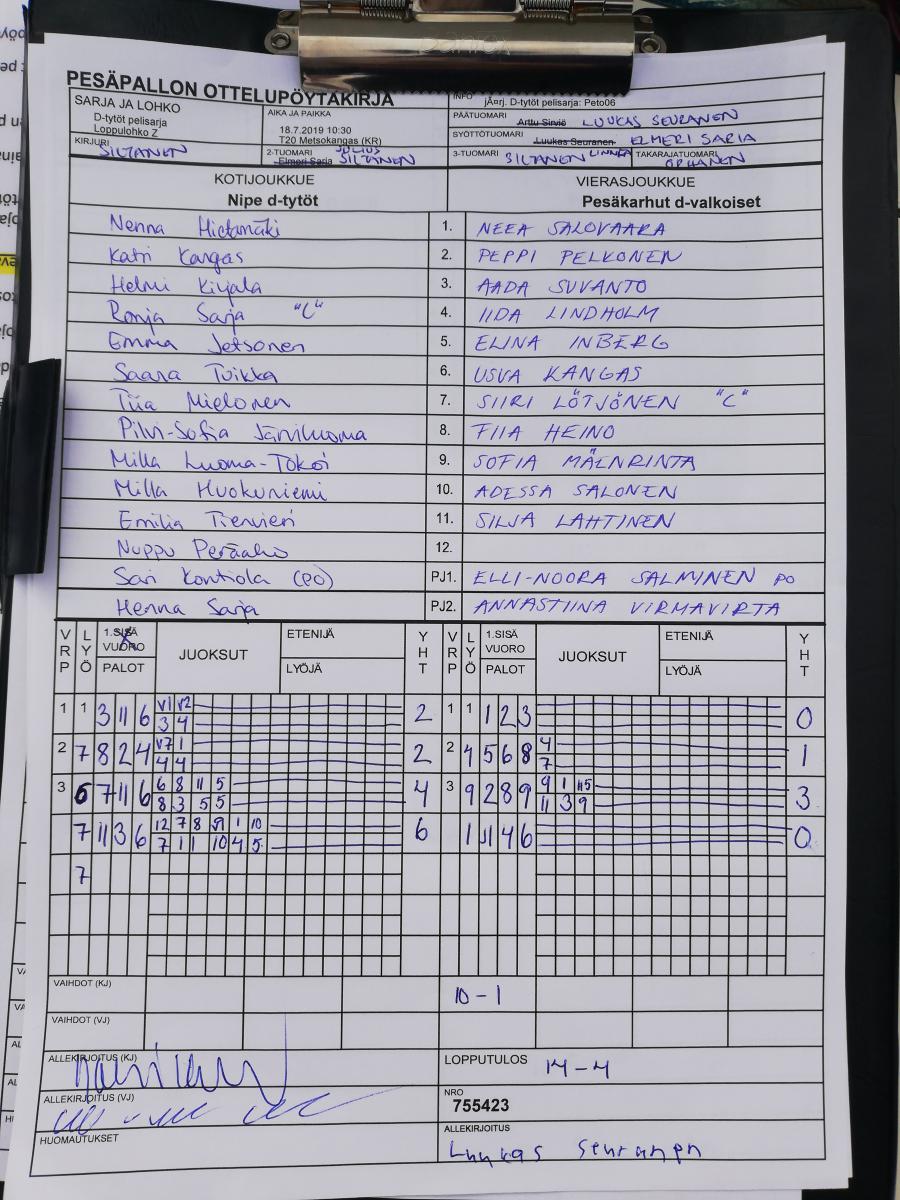 PESÄPALLON OTTELUPÖYTÄKIRJA
SARJA JA LOHKO
D-tytöt pelisarja
Loppulohko Z
AIKA JA PAIKKA
18.7.2019 10:30
T20 Metsokangas (KR)
INFO
jÄrj. D-tytöt pelisarja: Peto06
PÄÄTUOMARI Arttu Sirviö LUUKAS SEURANEN
SYÖTTÖTUOMARI Luukas Seuranen ELMERI SARIA
KIRJURI SILTANEN
2-TUOMARI Elmeri Saria JULIUS SILTANEN
3-TUOMARI SILTANEN LINNEA
TAKARAJATUOMARI
KOTIJOUKKUE VIERASJOUKKUE
Nipe d-tytöt Pesäkarhut d-valkoiset
Nenna Hietamäki 1. NEEA SALOVAARA
Katri Kangas 2. PEPPI PELKONEN
Helmi Kivjala 3. AADA SUVANTO
Ronja Sarja "C" 4. IIDA LINDHOLM
Emma Jetsonen 5. ELINA INBERG
Saana Tuikka 6. USVA KANGAS
Tiia Mielonen 7. SIIRI LÖTJÖNEN "C"
Pilvi-Sofia Järviluoma 8. FIIA HEINO
Milla Luoma-Tokoi 9. SOFIA MÄENRINTA
Milla Huokuniemi 10. ADESSA SALONEN
Emilia 11. SILJA LAHTINEN
Nuppu Peräaho 12.
Sari Kontiola (PO) PJ1. ELLI-NOORA SALMINEN PO
Henna Sarja PJ2. ANNASTIINA VIRMAVIRTA
VRP LYÖ 1.SISÄ VUORO PALOT JUOKSUT ETENIJÄ LYÖJÄ YHT VRP LYÖ 1.SISÄ VUORO PALOT JUOKSUT ETENIJÄ LYÖJÄ YHT
1 1 3 11 6 V1 V2 2 1 1 1 2 3 0
3 4
2 7 8 2 4 V7 1 2 2 4 5 6 8 4 1
4 4 7
3 6 7 11 6 6 8 11 5 4 3 9 2 8 9 9 1 3
8 3 5 5 11 3 9
7 11 3 6 12 7 8 1 10 6 1 11 4 6 0
7 1 1 10 4 5
7
VAIHDOT (KJ) 10-1
VAIHDOT (VJ)
ALLEKIRJOITUS (KJ) LOPPUTULOS 14-4
ALLEKIRJOITUS (VJ) NRO
755423
HUOMAUTUKSET ALLEKIRJOITUS
Luukas Seuranen